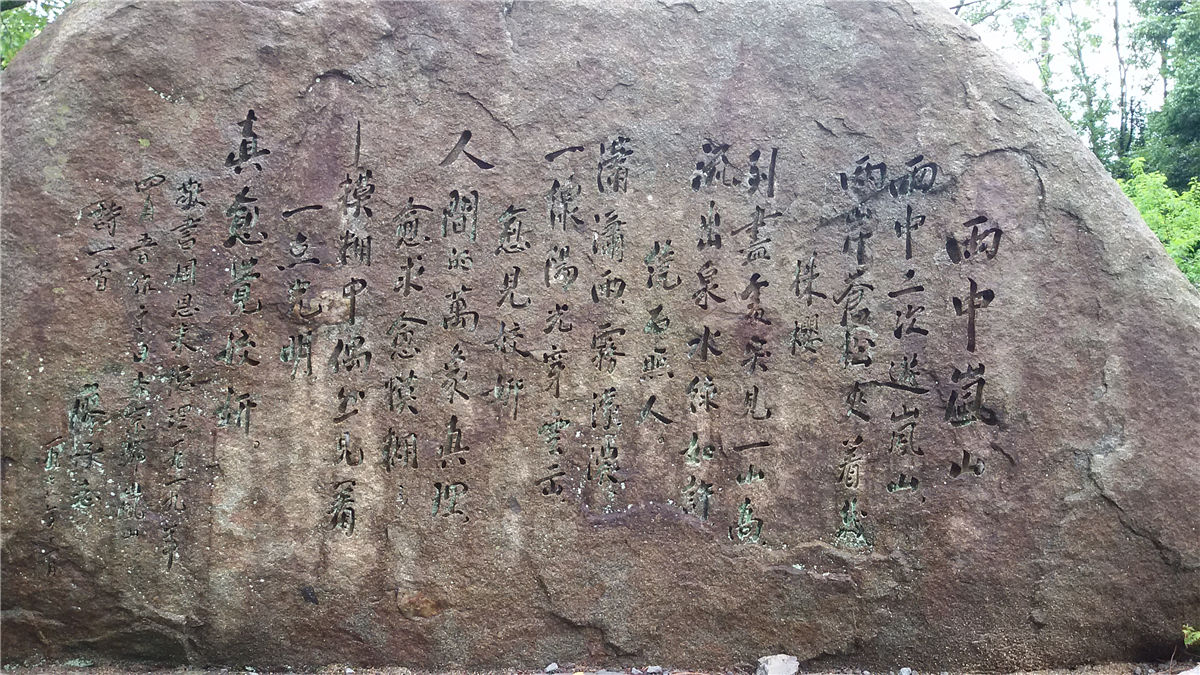 雨中嵐山
雨中二次遊嵐山
兩岸蒼松夾着幾
株櫻
到盡處突見一山高
流出泉水綠如許
繞石照人
瀟瀟雨霧濛濃
一線陽光穿雲出
愈見姣妍
人間的萬象真理
愈求愈模糊
模糊中偶然見着
一点光明
真愈覺姣妍。
敬書周恩來總理一九一九年
四月五日作于日本京都嵐山
詩一首
廖承志